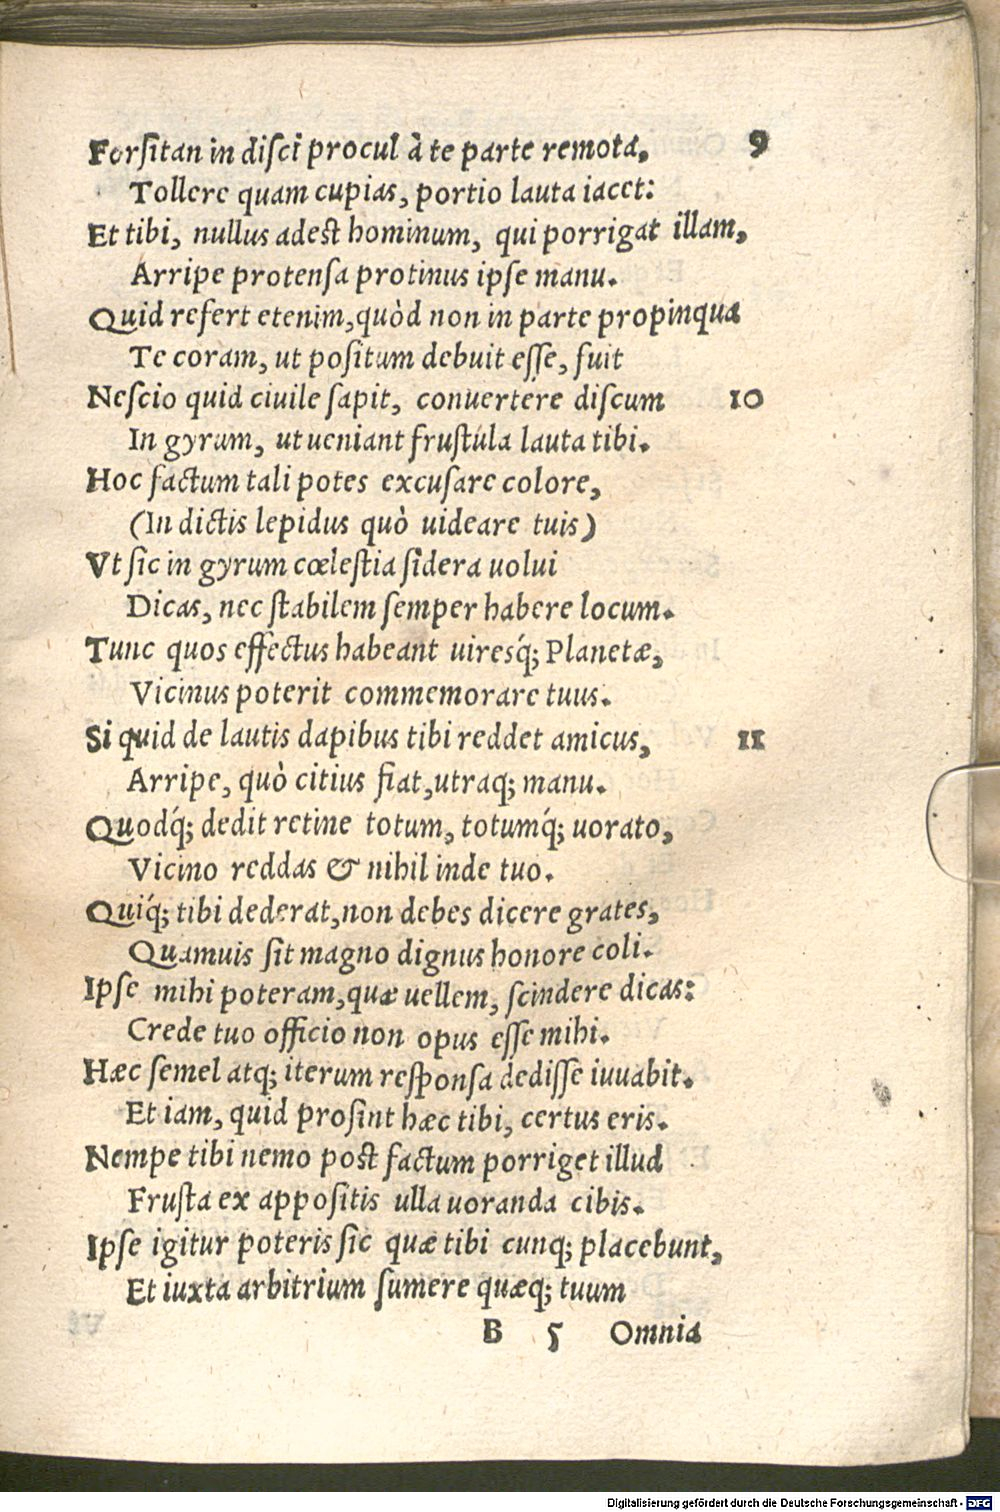 Forsitan in disci procul à te parte remota, 9
Tollere quam cupias, portio lauta iacet:
Et tibi, nullus adest hominum, qui porrigat illam,
Arripe protensa protinus ipse manu.
Quid refert etenim, quòd non in parte propinqua
Te coram, ut positum debuit esse, fuit
Nescio quid ciuile sapit, conuertere discum 10
In gyrum, ut ueniant frustula lauta tibi.
Hoc factum tali potes excusare colore,
(In dictis lepidus quò uideare tuis)
Vt sic in gyrum cœlestia sidera uolui
Dicas, nec stabilem semper habere locum.
Tunc quos effectus habeant uiresq́; Planetæ,
Vicinus poterit commemorare tuus.
Si quid de lautis dapibus tibi reddet amicus, 11
Arripe, quò citius fiat, utraq; manu.
Quodq́; dedit retine totum, totumq́; uorato,
Vicino reddas & nihil inde tuo.
Quiq́; tibi dederat, non debes dicere grates,
Quamuis sit magno dignus honore coli.
Ipse mihi poteram, quæ uellem, scindere dicas:
Crede tuo officio non opus esse mihi.
Hæc semel atq; iterum responsa dedisse iuuabit.
Et iam, quid prosint hæc tibi, certus eris.
Nempe tibi nemo post factum porriget illud
Frusta ex appositis ulla uoranda cibis.
Ipse igitur poteris sic quæ tibi cunq; placebunt,
Et iuxta arbitrium sumere quæq; tuum
B 5 Omnia
Digitalisierung gefördert durch die Deutsche Forschungsgemeinschaft - DFG